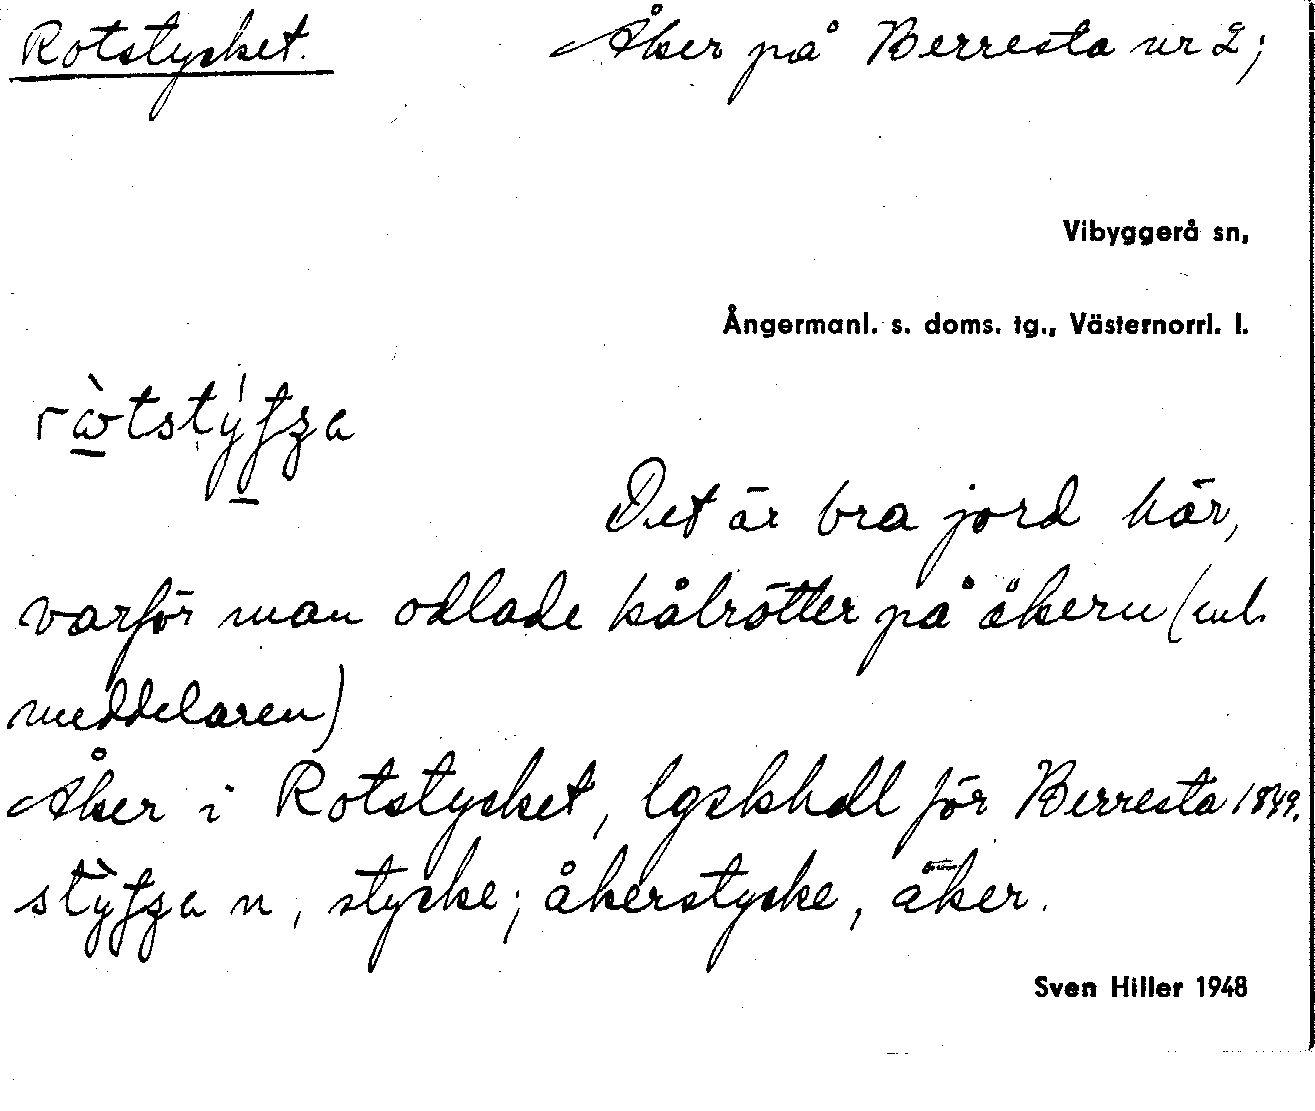 Rotstycket. Åker på Berresta nr 2;
Vibyggerå sn,
Ångermanl. s. doms. tg., Västernorrl. l.
Det är bra jord här,
varför man odlade kålrötter på åkern (enl.
meddelaren)
Åker i Rotstycket, lgskhdl för Berresta 1849.
n, stycke; åkerstycke, åker.
Sven Hiller 1948